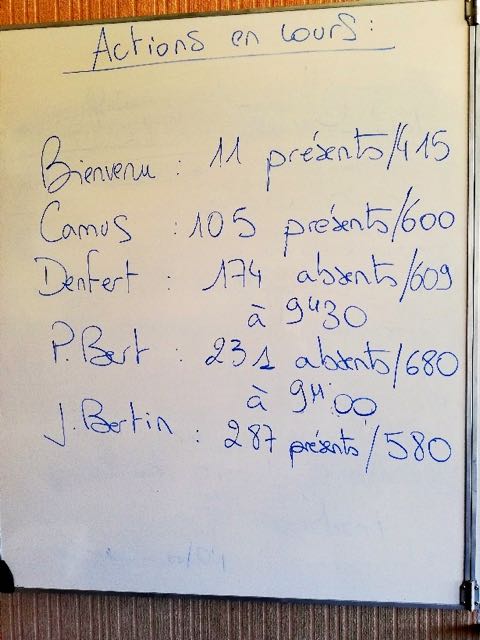 Actions en cours :
Bienvenu : 11 présents/415
Camus : 105 présents/600
Denfert : 174 absents/609
à 9H30
P. Bert : 231 absents/680
à 9H:00
J. Bertin : 287 présents/580